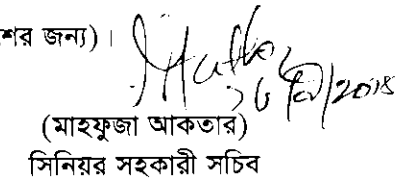 শের জন্য)।
(মাহফুজা আকতার)
সিনিয়র সহকারী সচিব